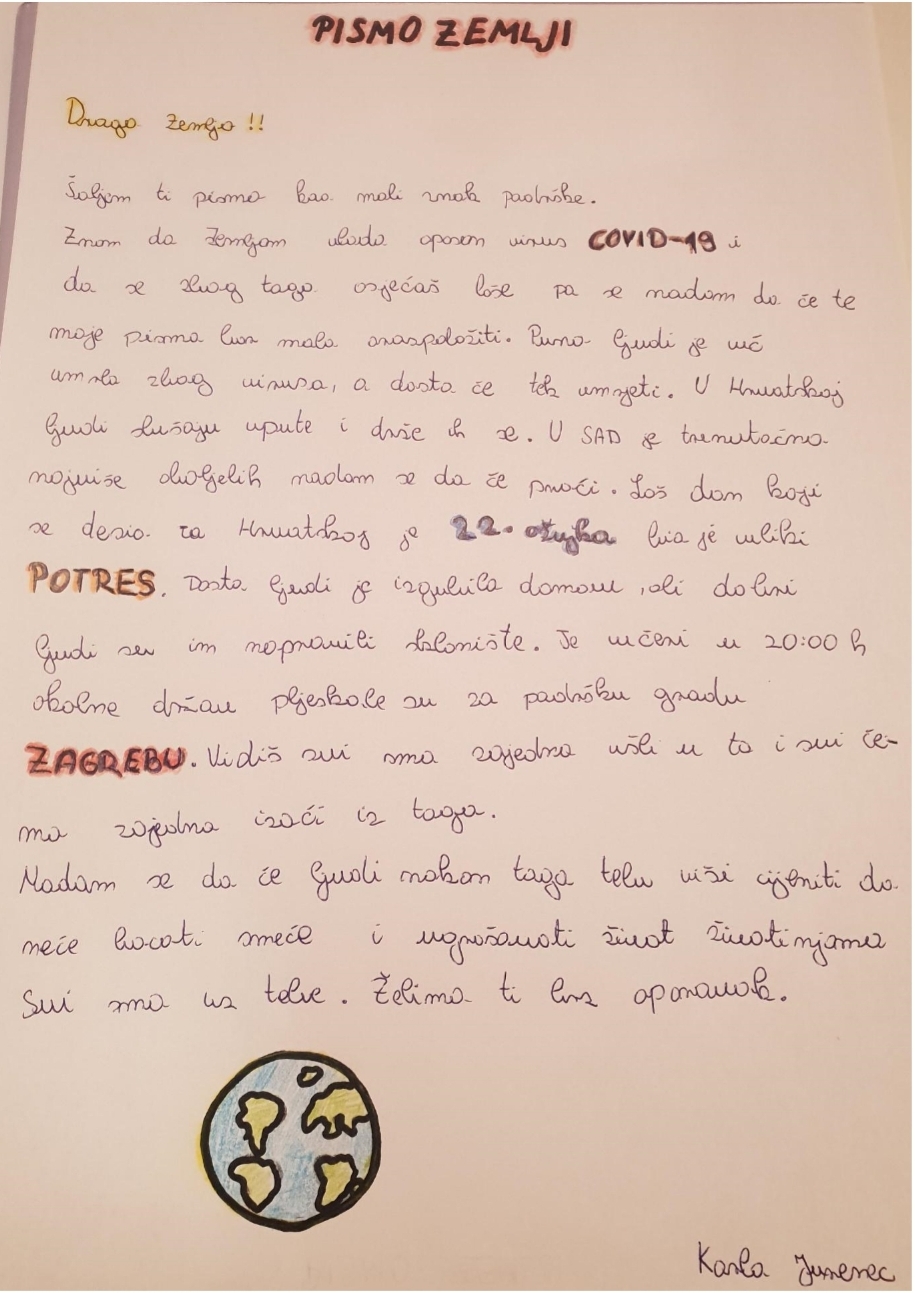 PISMO ZEMLJI
Drago Zemljo !!
Šaljem ti pismo kao mali znak podrške.
Znam da Zemljom vlada opasan virus COVID-19 i
da se zbog toga osjećaš loše pa se nadam da če te
moje pismo bar malo oraspoložiti. Puno ljudi je več
umrlo zbog virusa, a dosta če tek umrjeti. U Hrvatskoj
ljudi slušaju upute i drže ih se. U SAD je trenutačno
najviše oboljelih nadam se da če proći. Loš dan koji
se desio za Hrvatskoj je 22. ožujka bio je veliki
POTRES. Dosta ljudi je izgubilo domove, ali dobri
ljudi su im napravili sklonište. Je učeri u 20:00 h
okolne držav pljeskale su za podršku gradu
ZAGREBU. Vidiš svi smo zajedno ušli u to i svi će-
mo zajedno izaći iz toga.
Nadam se da će ljudi nakon toga tebe više cijeniti da
neće bacati smeće i ugrožavati život životinjama
Svi smo uz tebe. Želimo ti brz oporavak.
Karla